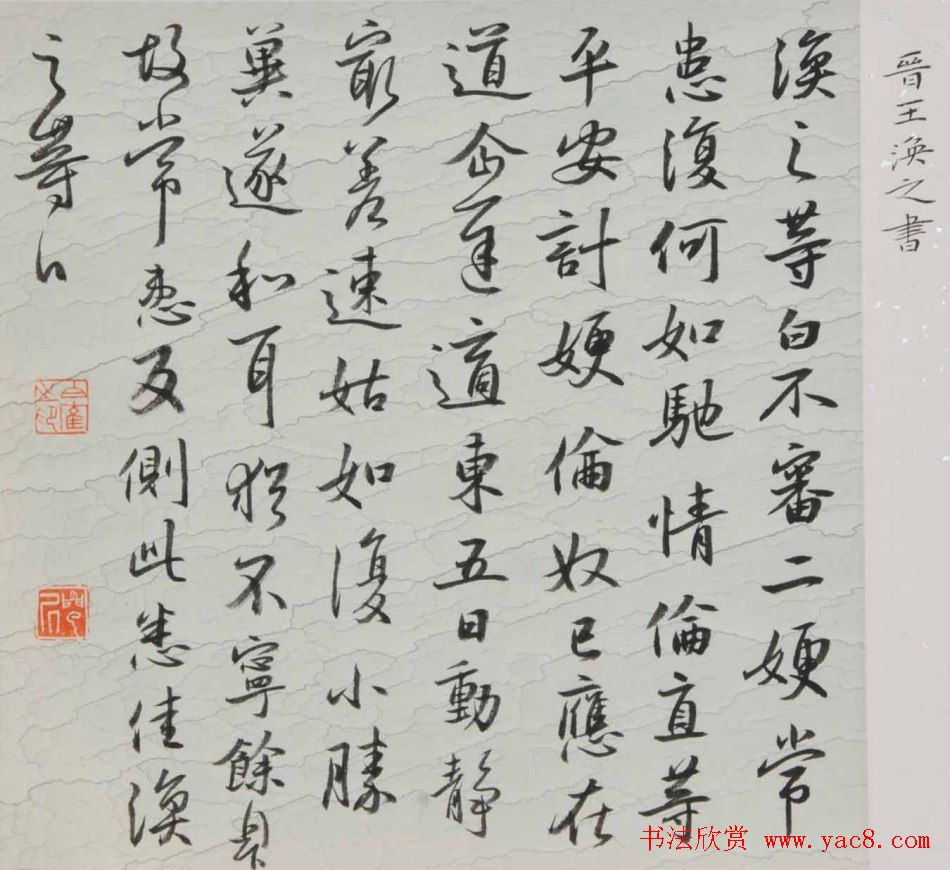 晉王渙之書
渙之等白不審二嫂常
患復何如馳情倫直等
平安計嫂倫奴已應在
道企遲適東五日動靜
寂差速姑如復小勝
冀遂和耳猶不寧餘具
故常患反側此悉佳渙
之等白
书法欣赏 www.yac8.com